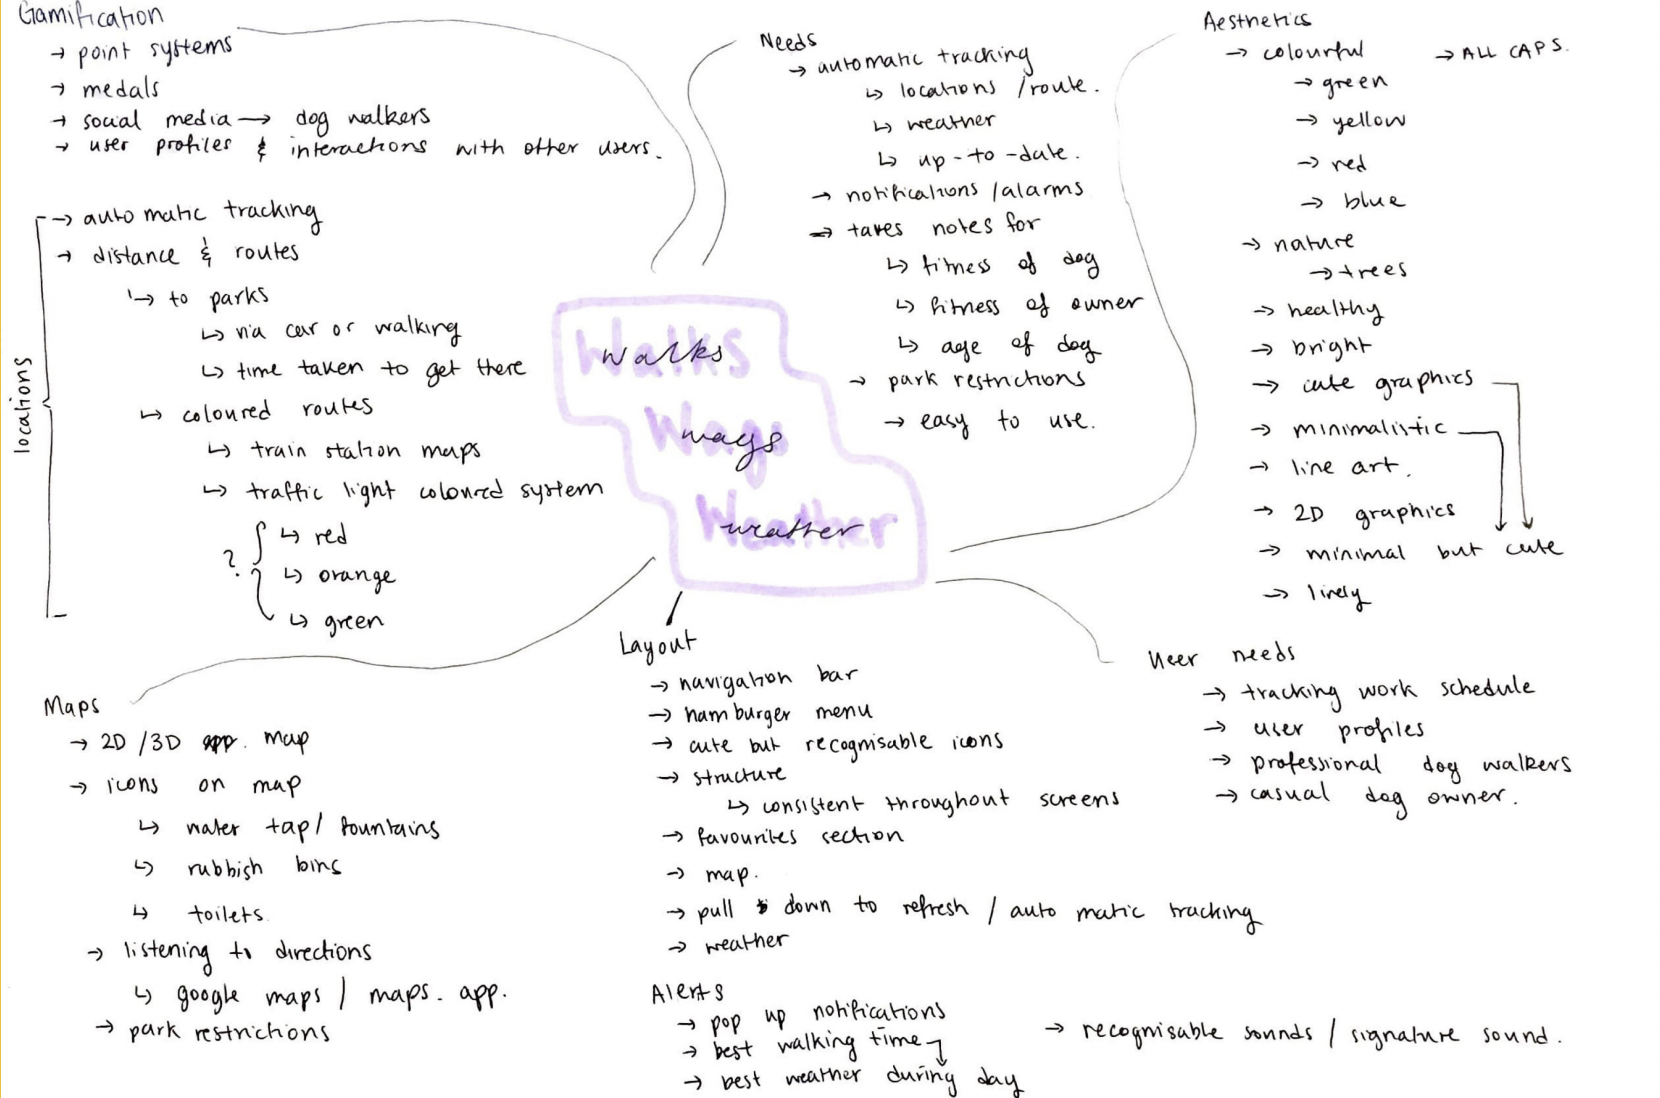 Gamification
→ point systems
→ medals
→ social media → dog walkers
→ user profiles & interactions with other users.
locations
→ automatic tracking
→ distance & routes
↳ to parks
↳ via car or walking
↳ time taken to get there
↳ coloured routes
↳ train station maps
↳ traffic light coloured system
?
↳ red
↳ orange
↳ green
Needs
→ automatic tracking
↳ locations / route.
↳ weather
↳ up-to-date.
→ notifications / alarms
→ takes notes for
↳ fitness of dog
↳ fitness of owner
↳ age of dog
→ park restrictions
→ easy to use.
Aesthetics
→ colourful → ALL CAPS.
→ green
→ yellow
→ red
→ blue
→ nature
→ trees
→ healthy
→ bright
→ cute graphics
→ minimalistic
→ line art.
→ 2D graphics
→ minimal but cute
→ lively
Walks
walks
Wags
wags
Weather
weather
Maps
→ 2D / 3D map
→ icons on map
↳ water tap / fountains
↳ rubbish bins
↳ toilets.
→ listening to directions
↳ google maps / maps. app.
→ park restrictions
Layout
→ navigation bar
→ hamburger menu
→ cute but recognisable icons
→ structure
↳ consistent throughout screens
→ favourites section
→ map.
→ pull down to refresh / automatic tracking
→ weather
User needs
→ tracking work schedule
→ user profiles
→ professional dog walkers
→ casual dog owner.
Alerts
→ pop up notifications
→ best walking time
→ best weather during day
→ recognisable sounds / signature sound.